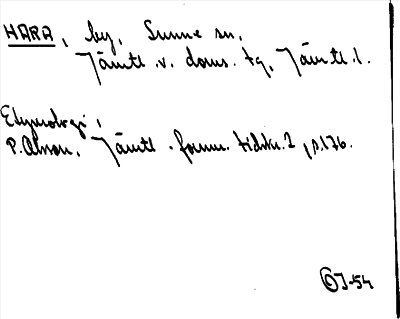 HARA, by, Sunne sn,
Jämtl. v. doms. tg, Jämtl. l.
Etymologi:
P. Olsson, Jämtl. fornm. tidskr. 2, s. 176.
OJ-54